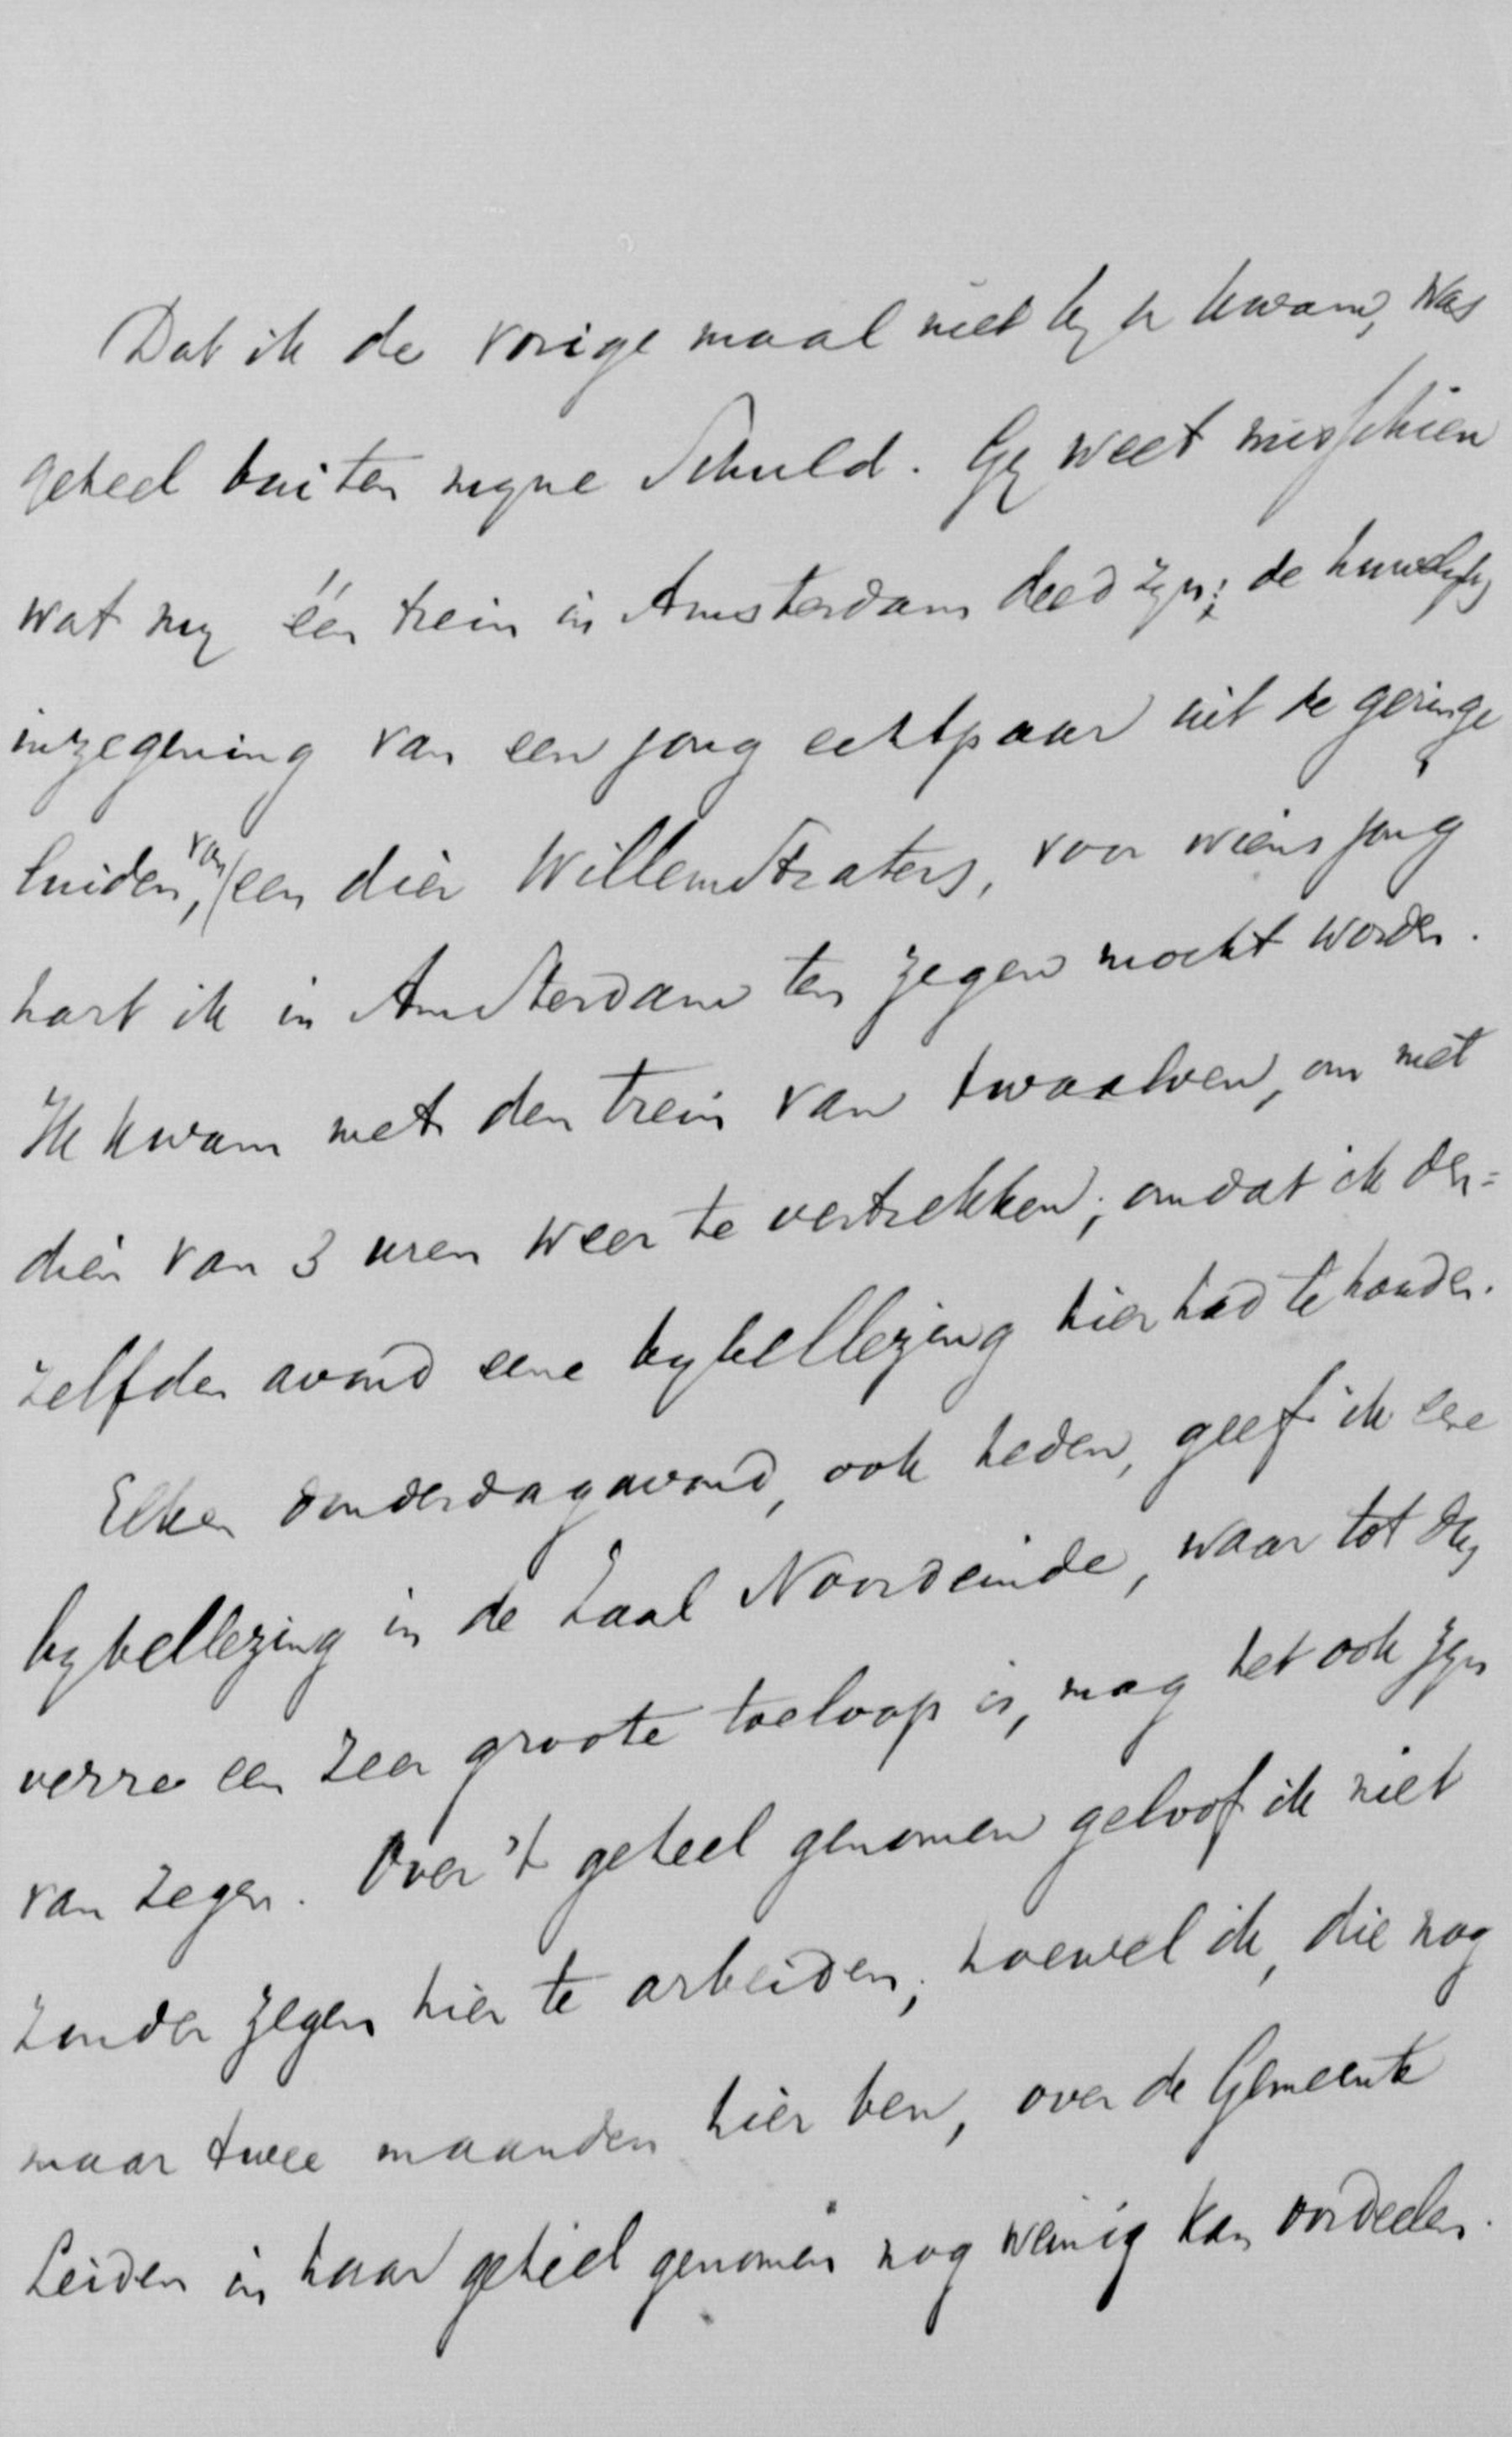 Dat ik de vorige maal niet by u kwam, was
geheel buiten myne schuld. Gy weet misschien
wat my één trein in Amsterdam deed zyn: de huwelyks
inzegening van een jong echtpaar uit de geringe
luiden, van een dier Willemstraters, voor wiens jong
hart ik in Amsterdam ten zegen mocht worden.
Ik kwam met den trein van twaalven, om met
dien van 3 uren weer te vertrekken; omdat ik den=
zelfden avond eene bybellezing hier had te houden.
Elken donderdagavond, ook heden, geef ik eene
bybellezing in de zaal Noordeinde, waar tot dus
verre een zeer groote toeloop is, mag het ook zyn
van zegen. Over 't geheel genomen geloof ik niet
zonder zegen hier te arbeiden; hoewel ik, die nog
maar twee maanden hier ben, over de Gemeente
Leiden in haar geheel genomen nog weinig kan oordeelen.